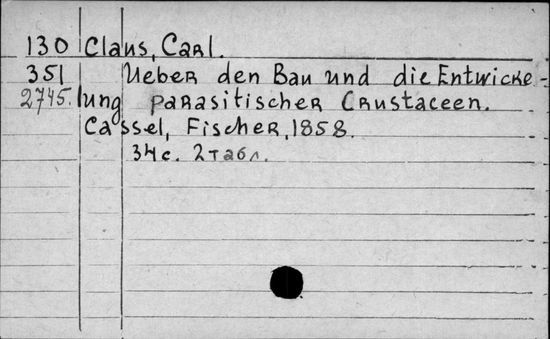 130 Claus, Carl.
351 Ueber den Bau und die Entwicke-
2745. lung parasitischer Crustaceen.
Cassel, Fischer, 1858.
34 с. 2 табл.